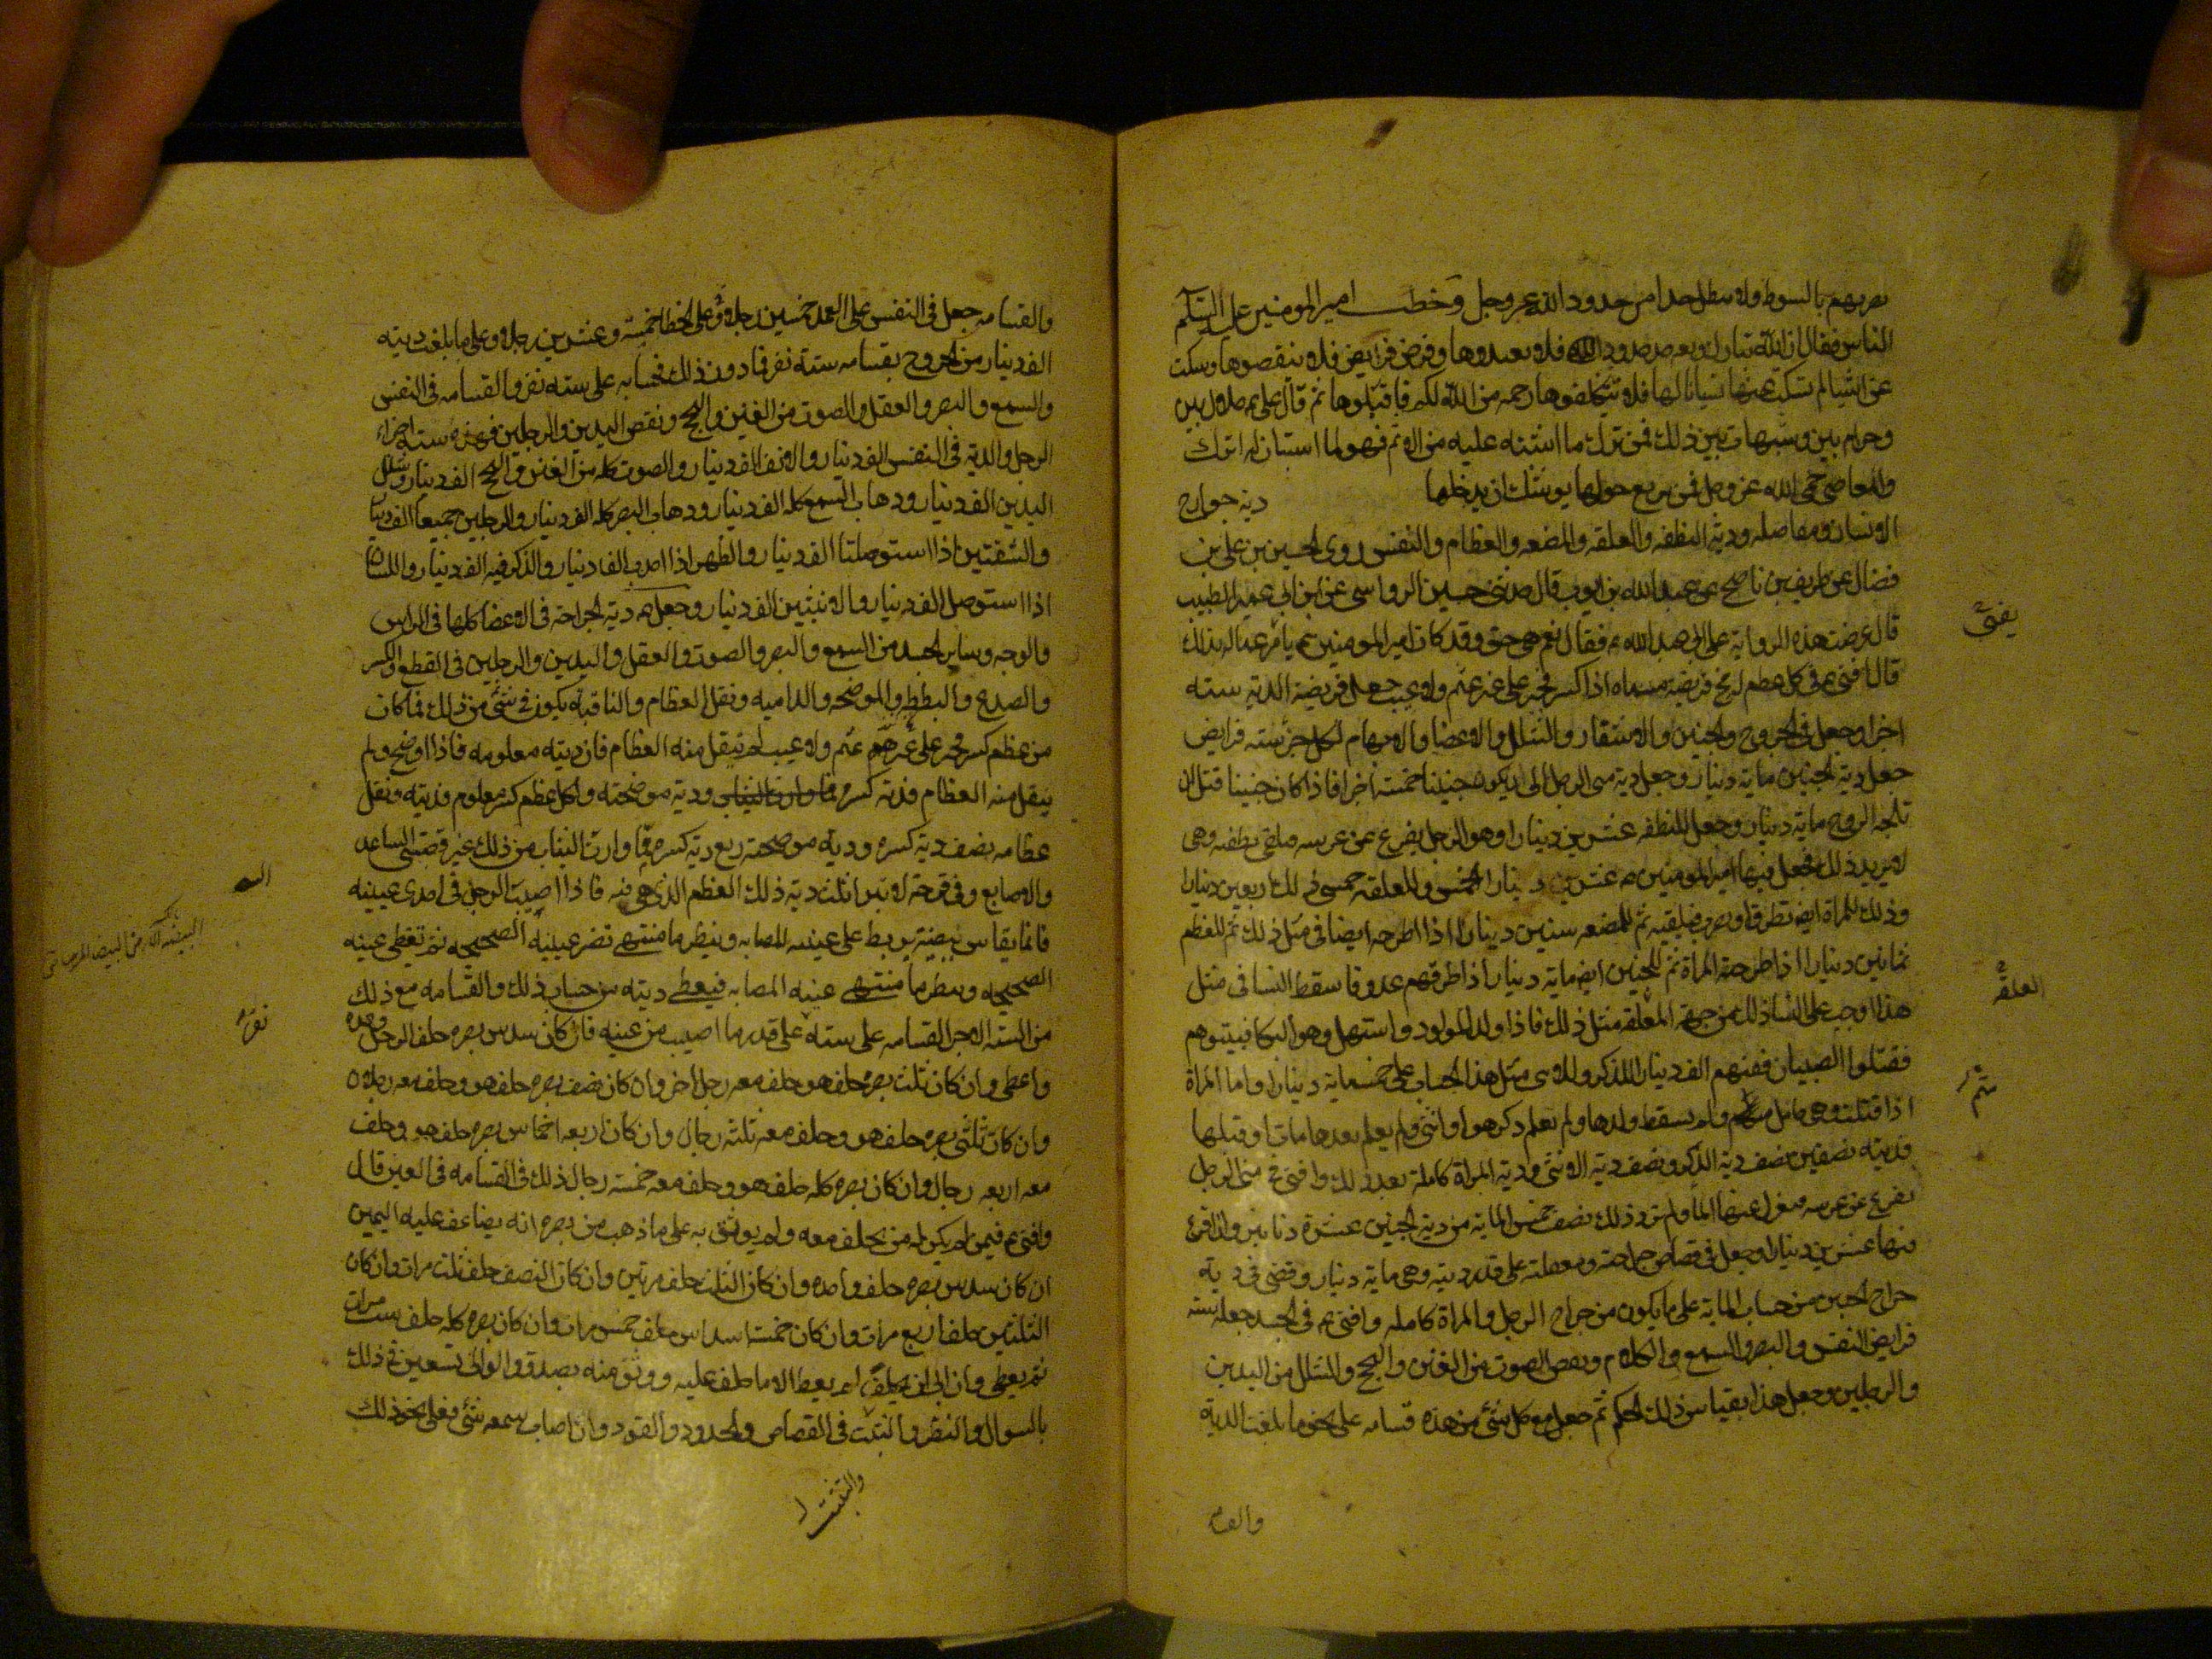 يضربهم بالسوط ولا يبطل حدا من حدود الله عز وجل وخطب امير المومنين عليه السلم
الناس فقال ان الله تبارك وتعالى حد حدودا فلا تعتدوها وفرض فرايض فلا تنقصوها وسكت
عن اشيا لم يسكت عنها نسيانا لها فلا تتكلفوها رحمه من الله لكم فاقبلوها ثم قال على ع حلال بين
وحرام بين وشبهات بين ذلك فمن ترك ما اشتبه عليه من الاثم فهو لما استبان له اترك
والمعاصى حمى الله عز وجل فمن يرتع حولها يوشك ان يدخلها دية جوارح
الانسان ومفاصله ودية النطفه والعلقه والمضغه والعظام والنفس روى الحسن بن على بن
فضال عن ظريف بن ناصح عن عبد الله بن ايوب قال حدثنى حسين الرواسى عن ابن ابى عمير الطبيب
قال عرضت هذه الرواية على ابى عبد الله ع فقال نعم هى حق وقد كان امير المومنين ع يامر عماله بذلك
قال افتى ع فى كل عظم له مخ فريضه مسماه اذا كسر فجبر على غير عثم ولا عيب جعل فريضة الدية سته
اجزا وجعل فى الجروح والجنين والاشفار والشلل والاعضا والابهام لكل جز سته فرايض
جعل دية الجنين ماية دينار وجعل دية منى الرجل الى ان يكون جنينا خمسة اجزا فاذا كان جنينا قبل ان
تلجه الروح ماية دينار وجعل للنطفه عشرين دينارا وهو الرجل يفرغ عن عرسه فيلقى نطفته وهى
لا يريد ذلك فجعل فيها امير المومنين ع عشرين دينارا الخمس وللعلقه خمسى ذلك اربعين دينارا
وذلك للمراة ايضا تطرق او تضرب فيلقيه ثم للمضغه ستين دينارا اذا طرحته ايضا فى مثل ذلك ثم للعظم
ثمانين دينارا اذا طرحته المراة ثم للجنين ايضا ماية دينار اذا طرقهم عدو فاسقط النسا فى مثل
هذا اوجب على النسا ذلك من جهة المعلقه مثل ذلك فاذا ولد المولود واستهل وهو البكا فبيتوهم
فقتلوا الصبيان ففيهم الف دينار للذكر وللانثى مثل هذا الحساب على خمسماية دينار واما المراة
اذا قتلت وهى حامل متم ولم يسقط ولدها ولم يعلم ذكر هو او انثى ولم يعلم بعدها مات او قبلها
فديته نصفين نصف دية الذكر ونصف دية الانثى ودية المراة كاملة بعد ذلك وافتى ع فى منى الرجل
يفرغ عن عرسه فيعزل عنها الما ولم ترد ذلك نصف خمس الماية من دية الجنين عشرة دنانير وان افرغ
فيها عشرين دينارا وجعل فى قصاص جراحته ومعقلته على قدر ديته وهى ماية دينار وقضى فى دية
جراح الجنين من حساب الماية على ما يكون من جراح الرجل والمراة كامله وافتى ع فى الجسد جعله سته
فرايض النفس والبصر والسمع والكلام ونقص الصوت من الغنن والبحح والشلل من اليدين
والرجلين وجعل هذا بقياس ذلك الحكم ثم جعل مع كل شئ من هذه قسامه على نحو ما بلغت الدية
والقسامه
يفتى
العلقة
متم
والقسامه جعل فى النفس على العمد خمسين رجلا وعلى الخطا خمسة وعشرين رجلا وعلى ما بلغت ديته
الف دينار من الجروح بقسامه ستة نفر فما دون ذلك فحسابه على سته نفر والقسامه فى النفس
والسمع والبصر والعقل والصوت من الغنن والبحح ونقص اليدين والرجلين فهذه ستة اجزاء
الرجل والدية فى النفس الف دينار والانف الف دينار والصوت كله من الغنن والبحح الف دينار وشلل
اليدين الف دينار وذهاب السمع كله الف دينار وذهاب البصر كله الف دينار والرجلين جميعا الف دينار
والشفتين اذا استوصلتا الف دينار والظهر اذا احدب الف دينار والذكر فيه الف دينار واللسان
اذا استوصل الف دينار والانثيين الف دينار وجعل ع دية الجراحة فى الاعضا كلها فى الراس
والوجه وساير الجسد من السمع والبصر والصوت والعقل واليدين والرجلين فى القطع والكسر
والصدع والبطط والموضحه والداميه ونقل العظام والناقبه يكون فى شئ من ذلك فما كان
من عظم كسر فجبر على غير عثم ولا عيب لم ينقل منه العظام فان ديته معلومه فاذا اوضح ولم
ينقل منه العظام فدية كسره ودية موضحته ولكل عظم كسر معلوم فديته ونقل
عظامه نصف دية كسره ودية موضحته ربع دية كسره فما وارت الثياب من ذلك غير قصبتى الساعد
والاصابع وفى قرحة لا تبرا ثلث دية ذلك العظم الذى هى فيه فاذا اصيب الرجل فى احدى عينيه
فانما يقاس ببيضة يربط على عينه المصابه وينظر ما منتهى نظر عينيه الصحيحه ثم تغطى عينه
الصحيحه وينظر ما منتهى عينه المصابه فيعطى ديته من حساب ذلك والقسامه مع ذلك
من السته الاجزا القسامه على سته على قدر ما اصيب من عينه فان كان سدس بصره حلف الرجل وحده
واعطى وان كان ثلث بصره حلف هو وحلف معه رجل اخر وان كان نصف بصره حلف هو وحلف معه رجلان
وان كان ثلثى بصره حلف هو وحلف معه ثلثه رجال وان كان اربعه اخماس بصره حلف هو وحلف
معه اربعه رجال وان كان بصره كله حلف هو وحلف معه خمسة رجال ذلك فى القسامه فى العين قال
وافتى ع فيمن لم يكن له من يحلف معه ولم يوثق به على ما ذهب من بصره انه يضاعف عليه اليمين
ان كان سدس بصره حلف واحده وان كان الثلث حلف مرتين وان كان النصف حلف ثلث مرات وان كان
الثلثين حلف اربع مرات وان كان خمسة اسداس حلف خمس مرات وان كان بصره كله حلف ست مرات
ثم يعطى وان ابى ان يحلف لم يعط الا ما حلف عليه ووثق منه بصدق والوالى يستعين فى ذلك
بالسوال والنظر والتثبت فى القصاص والحدود والقود وان اصاب سمعه شئ فعلى نحو ذلك
والتثبت